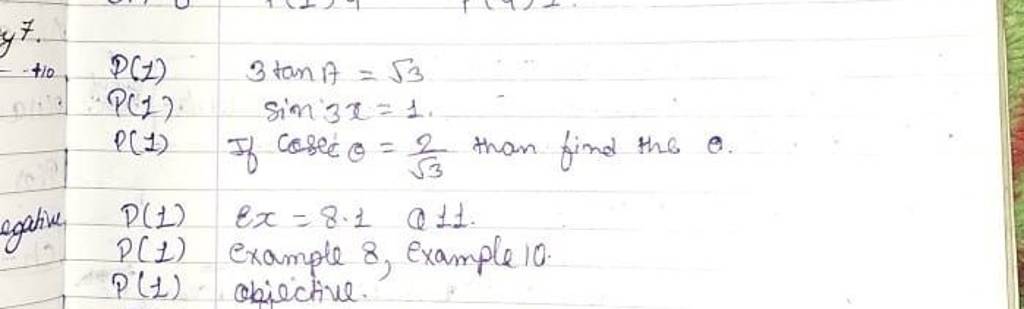 y 7.
P(1) 3 tan A = √3
P(1) sin 3x = 1.
P(1) If Cosec θ = 2/√3 than find the θ.
egative P(1) Ex = 8.1 Q 11.
P(1) Example 8, Example 10.
P(1) objective.